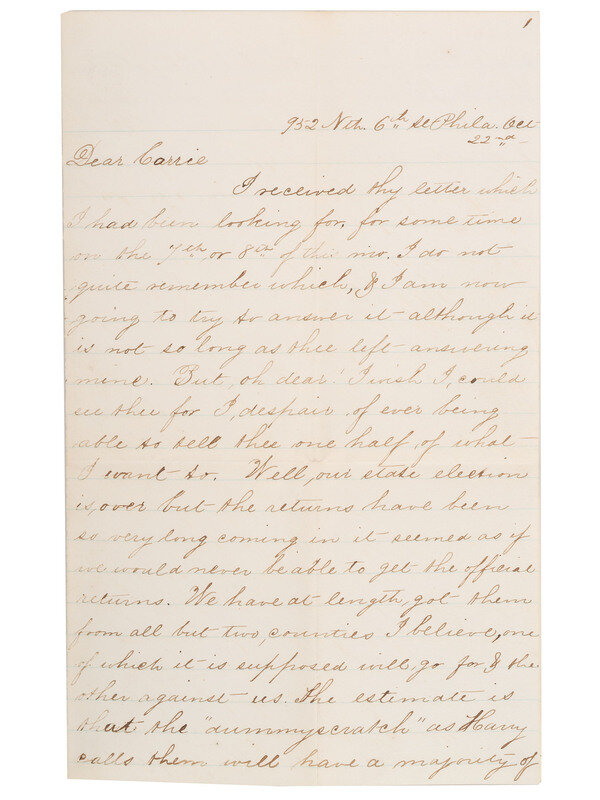 1
952 Nth. 6th St Phila. Oct
22nd
Dear Carrie
I received thy letter which
I had been looking for, for some time
on the 7th or 8th of this mo. I do not
quite remember which, & I am now
going to try to answer it although it
is not so long as thee left answering
mine. But, oh dear! I wish I, could
see thee for I, despair, of ever being
able to tell thee one half, of what
I want to. Well, our state election
is, over but the returns have been
so very long coming in it seemed as if
we would never be able to get the official
returns. We have at length, got them
from all but two, counties I believe, one
of which it is supposed will, go for & the
other against us. The estimate is
that the "dummyscratch" as Harry
calls them will have a majority of